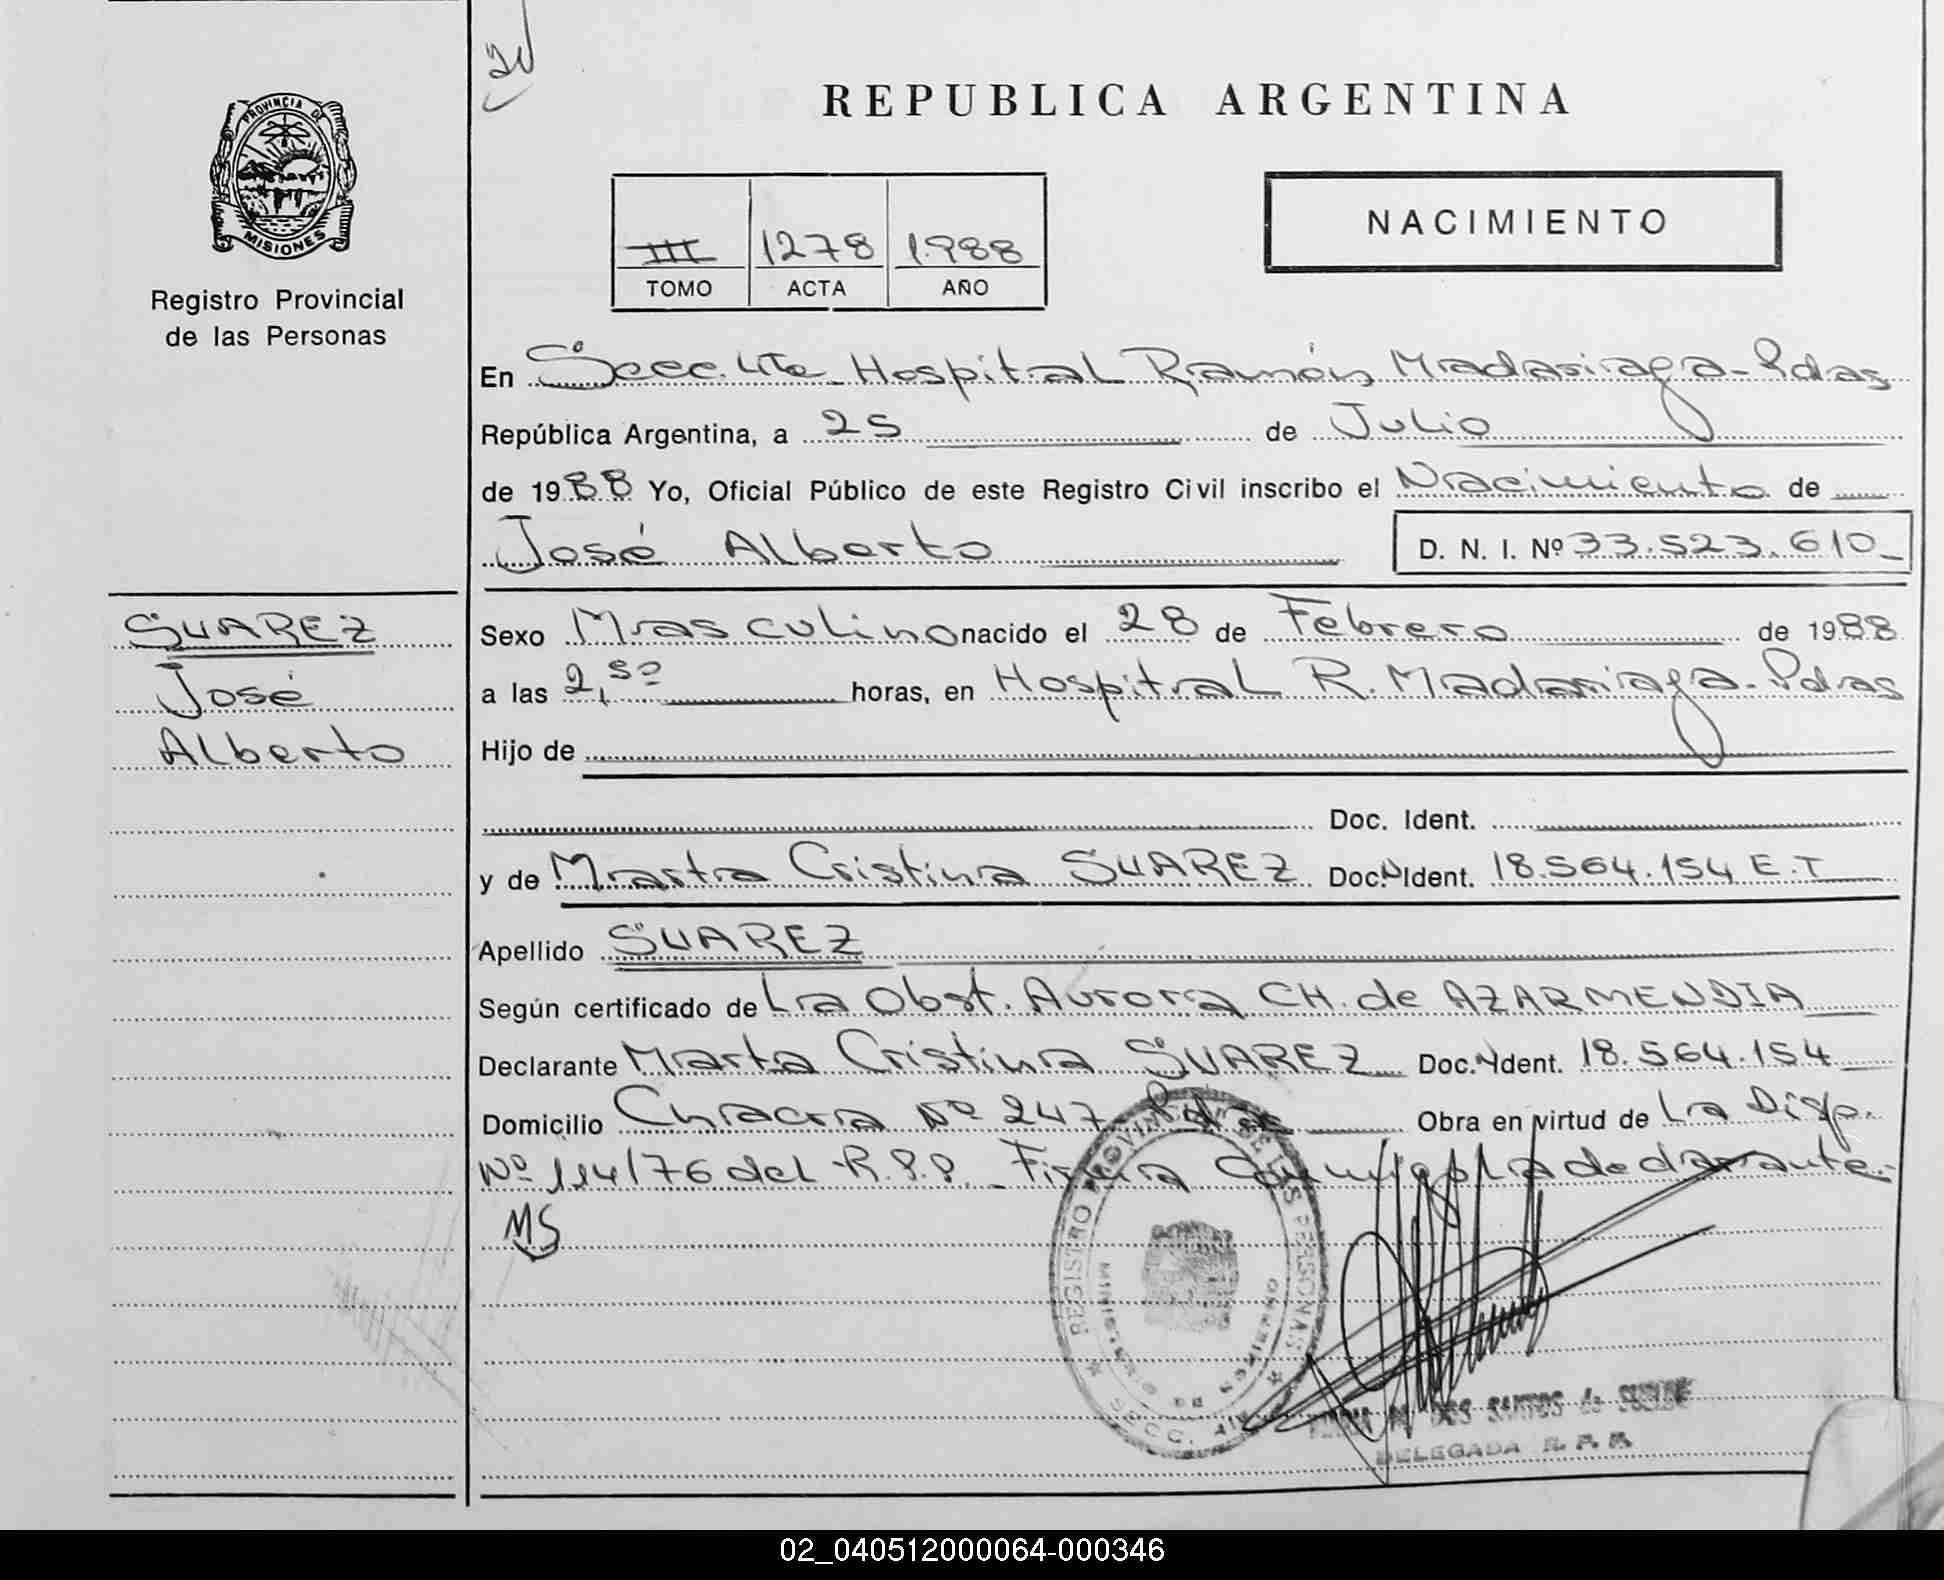 REPUBLICA ARGENTINA
PROVINCIA DE
MISIONES
Registro Provincial
de las Personas
III 1278 1.988
TOMO ACTA AÑO
NACIMIENTO
En Secc. 4ta. Hospital Ramón Madariaga - Pdas
República Argentina, a 25 de Julio
de 1988 Yo, Oficial Público de este Registro Civil inscribo el Nacimiento de
José Alberto D. N. I. Nº 33.523.610_
SUAREZ
José
Alberto
Sexo Masculino nacido el 28 de Febrero de 1988
a las 2,50 horas, en Hospital R. Madariaga - Pdas
Hijo de
Doc. Ident.
y de Marta Cristina SUAREZ Doc. N Ident. 18.564.154 E.T
Apellido SUAREZ
Según certificado de La Obst. Aurora CH. de AZARMENDIA
Declarante Marta Cristina SUAREZ Doc. N Ident. 18.564.154
Domicilio Chacra Nº 247 Pdas Obra en virtud de La Disp.
Nº 114/76 del R.P.P. _ Firma Conmigo la declarante.-
MS
REGISTRO PROVINCIAL DE LAS PERSONAS
MINISTERIO DE GOBIERNO
MISIONES
SECC.
DOS SANTOS de
DELEGADA R. P. P.
02_040512000064-000346